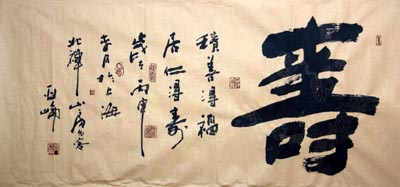 壽
積善得福
居仁得壽
歲次丙申
春月於上海
北禪山房客
正峰